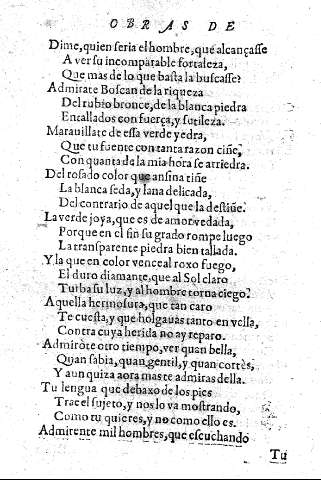 OBRAS DE
Dime, quien seria el hombre, que alcançasse
A ver su incomparable fortaleza,
Que mas de lo que basta la buscasse?
Admirate Boscan de la riqueza
Del rubio bronce, de la blanca piedra
Entallados con fuerça, y sutileza.
Marauillate de essa verde yedra,
Que tu fuente con tanta razon ciñe,
Con quanta de la mia hora se arriedra.
Del rosado color que ansina tiñe
La blanca seda, y lana delicada,
Del contrario de aquel que la destiñe.
La verde joya, que es de amor vedada,
Porque en el fin su grado rompe luego
La transparente piedra bien tallada.
Y la que en color vence al roxo fuego,
El duro diamante, que al Sol claro
Turba su luz, y al hombre torna ciego?
Aquella hermosura, que tan caro
Te cuesta, y que holgauas tanto en vella,
Contra cuya herida no ay reparo.
Admiròte otro tiempo, ver quan bella,
Quan sabia, quan gentil, y quan cortès,
Y aun quiza aora mas te admiras della.
Tu lengua que debaxo de los pies
Trae el sujeto, y nos lo va mostrando,
Como tu quieres, y no como ello es.
Admirente mil hombres, que escuchando
Tu